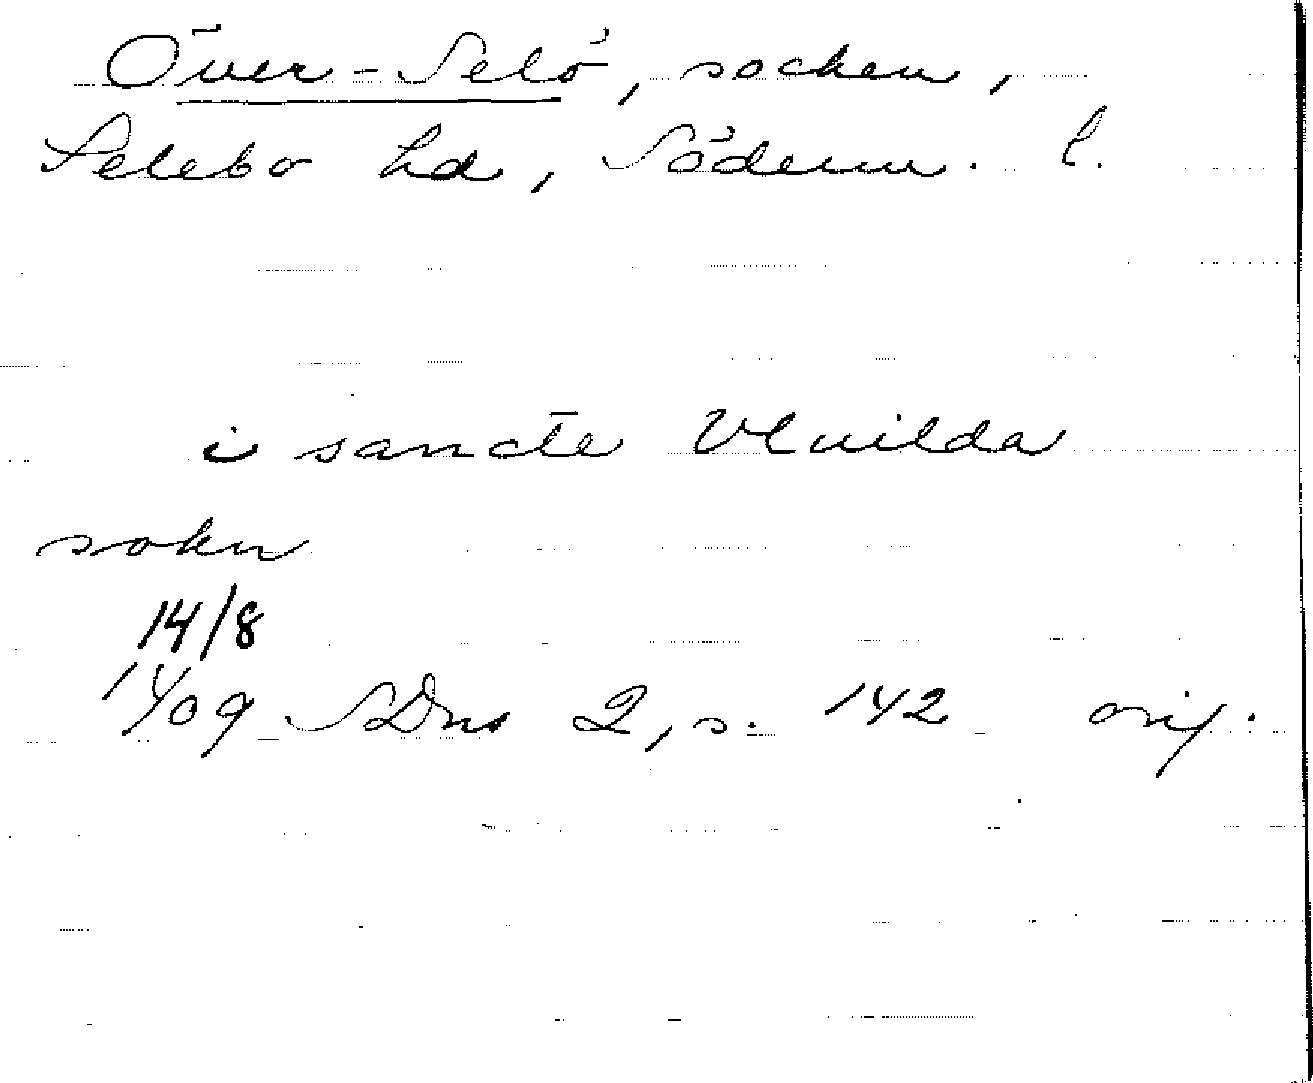 Över-Selö, socken,
Selebo hd, Söderm. l.
i sancte Vluilda
sokn
14/8
1409 SDns 2, s. 142 orig.